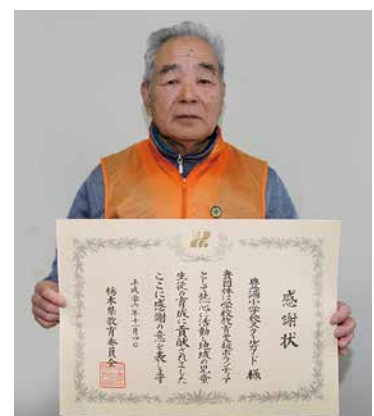 感謝状
小学校スクールガード 様
貴団体は学校教育支援ボランティア
として熱心に活動し地域の児童
生徒の育成に貢献されました
ここに感謝の意を表します
平成二十六年十一月
栃木県教育委員会